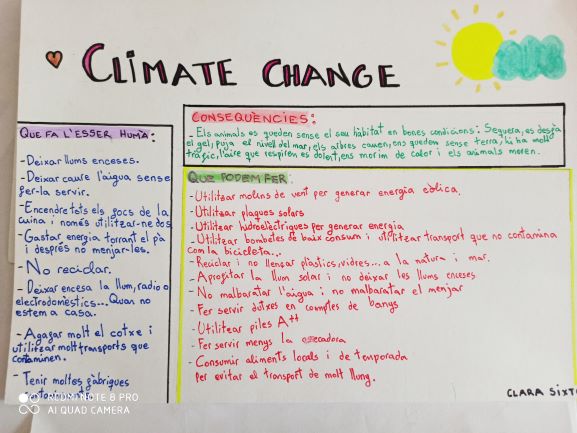 CLIMATE CHANGE
QUE FA L'ESSER HUMÀ:
- Deixar llums enceses.
- Deixar caure l'aigua sense
fer-la servir.
- Encendre tots els focs de la
cuina i només utilitzar-ne dos
- Gastar energia torrant el pà
i després no menjar-les.
- No reciclar.
- Deixar encesa la llum, radio o
electrodomèstics... Quan no
estem a casa.
- Agafar molt el cotxe i
utilitzar molt transports que
contaminen.
- Tenir moltes fàbriques
CONSEQÜENCIES:
- Els animals es queden sense el seu hàbitat en bones condicions: Sequera, es desfà
el gel, puja el nivell del mar, els arbres cauen, ens queden sense terra, hi ha molt
tràfic, l'aire que respirem es dolent, ens morim de calor i els animals moren.
QUE PODEM FER:
- Utilitzar molins de vent per generar energia eòlica.
- Utilitzar plaques solars
- Utilitzar hidroelèctriques per generar energia
- Utilitzar bombetes de baix consum i utilitzar transport que no contamina
com la bicicleta...
- Reciclar i no llençar plàstics, vidres... a la natura i mar.
- Aprofitar la llum solar i no deixar les llums enceses
- No malbaratar l'aigua i no malbaratar el menjar
- Fer servir dutxes en comptes de banys
- Utilitzar piles A++
- Fer servir menys la assecadora
- Consumir aliments locals i de temporada
per evitar el transport de molt lluny.
CLARA SIXTO
REDMI NOTE 8 PRO
AI QUAD CAMERA